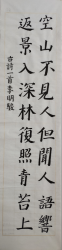 空山不見人但聞人語響
返景入深林復照青苔上
古詩一首 李明駿